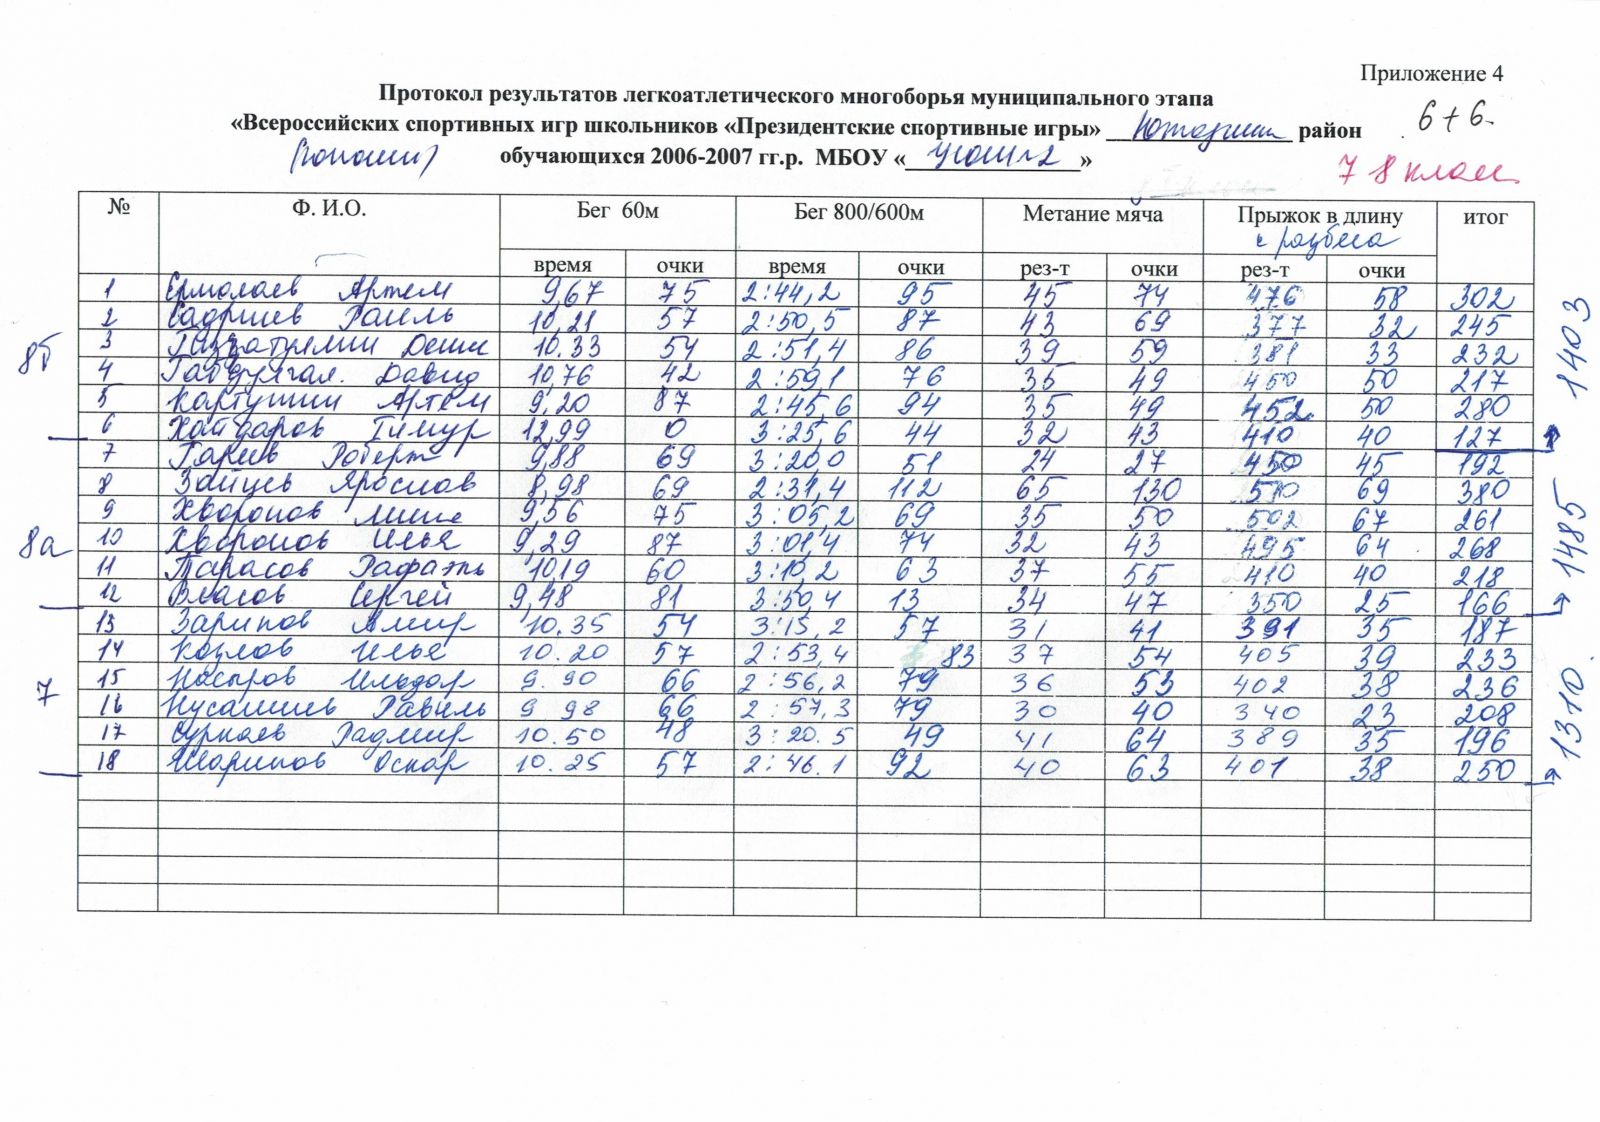 Приложение 4
Протокол результатов легкоатлетического многоборья муниципального этапа
6+6.
«Всероссийских спортивных игр школьников «Президентские спортивные игры» район
(юноши) обучающихся 2006-2007 гг.р. МБОУ « »
7 8 класс
№ Ф. И.О. Бег 60м Бег 800/600м Метание мяча Прыжок в длину с разбега итог
время очки время очки рез-т очки рез-т очки
1 Ермолаев Артем 9,67 75 2:44,2 95 45 74 476 58 302
2 Садриев Раиль 10,21 57 2:50,5 87 43 69 377 32 245
3 Денис 10.33 54 2:51,4 86 39 59 381 33 232
4 Габдулгал. Давид 10,76 42 2:59,1 76 35 49 450 50 217
5 Картушин Артем 9,20 87 2:45,6 94 35 49 452 50 280
6 Хайдаров Тимур 12,99 0 3:25,6 44 32 43 410 40 127
8б
1403
7 Гареев Роберт 9,88 69 3:20,0 51 24 27 450 45 192
8 Зайцев Ярослав 8,98 69 2:31,4 112 65 130 510 69 380
9 Хворонов Миша 9,56 75 3:05,2 69 35 50 502 67 261
10 Хворонов Илья 9,29 87 3:01,4 74 32 43 495 64 268
11 Тарасов Рафаэль 10,19 60 3:10,2 63 37 55 410 40 218
12 Власов Сергей 9,48 81 3:50,4 13 34 47 350 25 166
8а
1485
13 Зарипов Амир 10.35 54 3:15,2 57 31 41 391 35 187
14 Козлов Илья 10.20 57 2:53,4 83 37 54 405 39 233
15 Насыров Ильдар 9.90 66 2:56,2 79 36 53 402 38 236
16 Равиль 9 98 66 2:57,3 79 30 40 340 23 208
17 Радмир 10.50 48 3:20.5 49 41 64 389 35 196
18 Шарипов Оскар 10.25 57 2:46.1 92 40 63 401 38 250
7
1310.